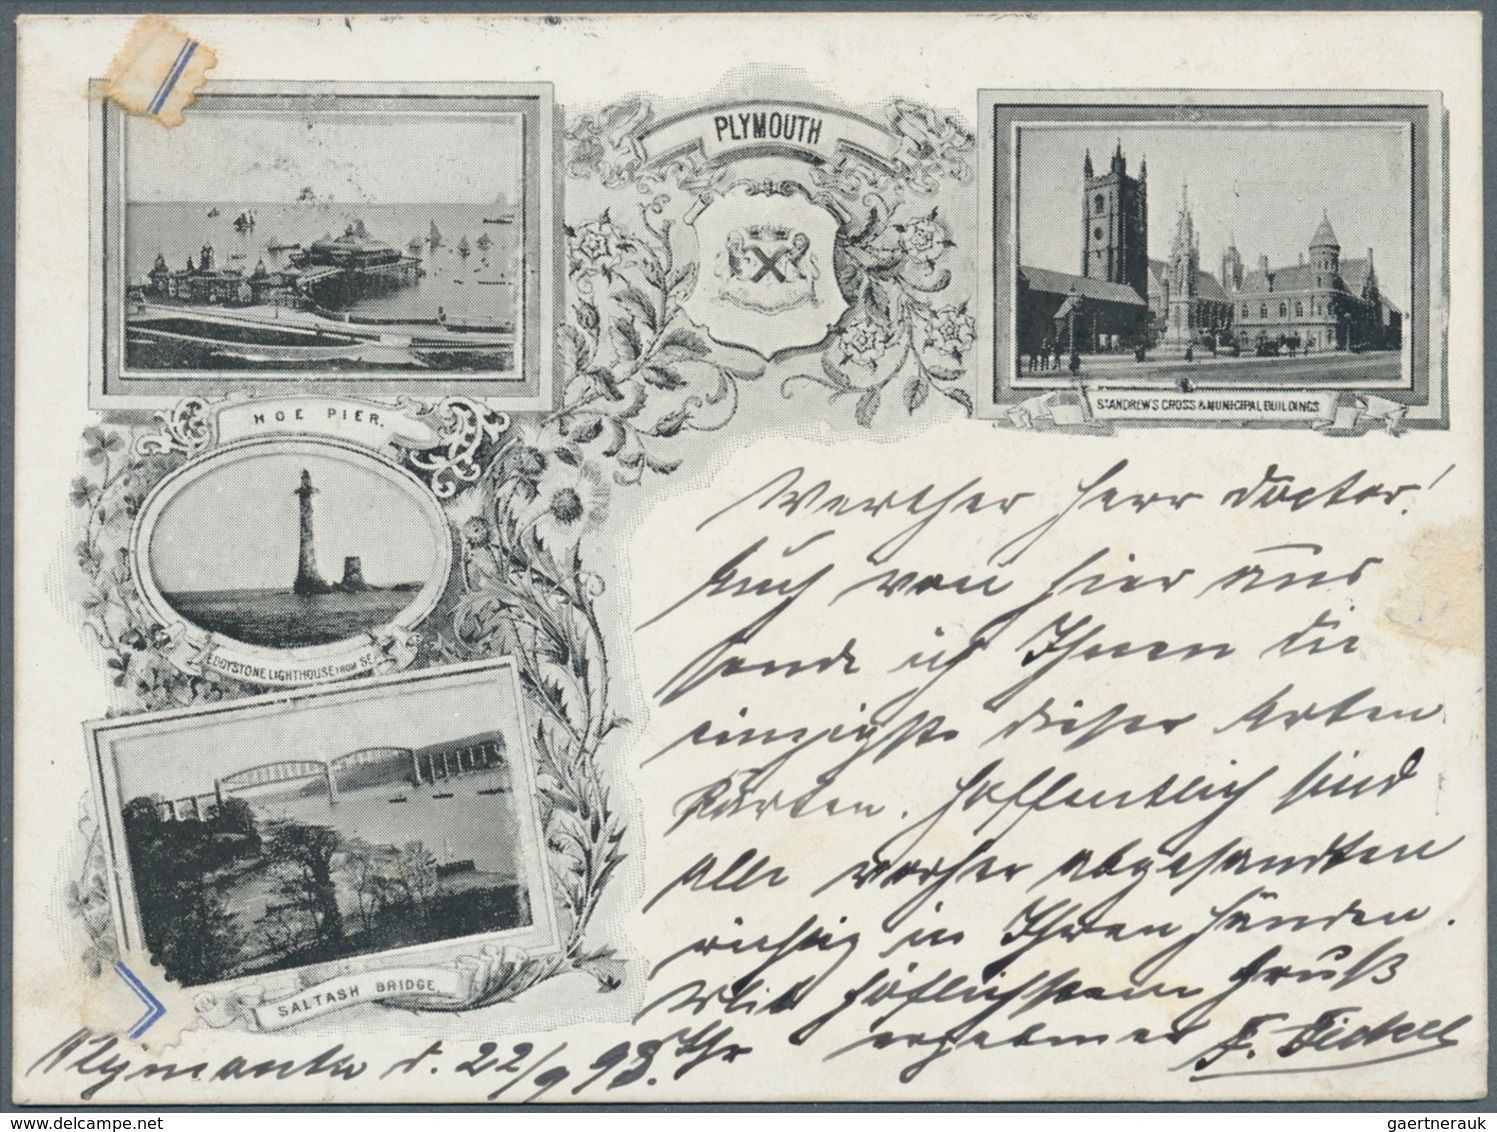 PLYMOUTH
HOE PIER.
ST ANDREW'S CROSS & MUNICIPAL BUILDINGS
EDDYSTONE LIGHTHOUSE FROM S.E.
SALTASH BRIDGE.
Werther Herr Doctor!
Auch von hier aus
sende ich Ihnen die
einzigste dieser Arten
Karten. Hoffentlich sind
alle vorher abgesandten
richtig in Ihren Händen.
Mit höflichstem Gruß
Ihr ergebener F.
Plymouth d. 22/9 98.
gaertnerauk @ delcampe.net